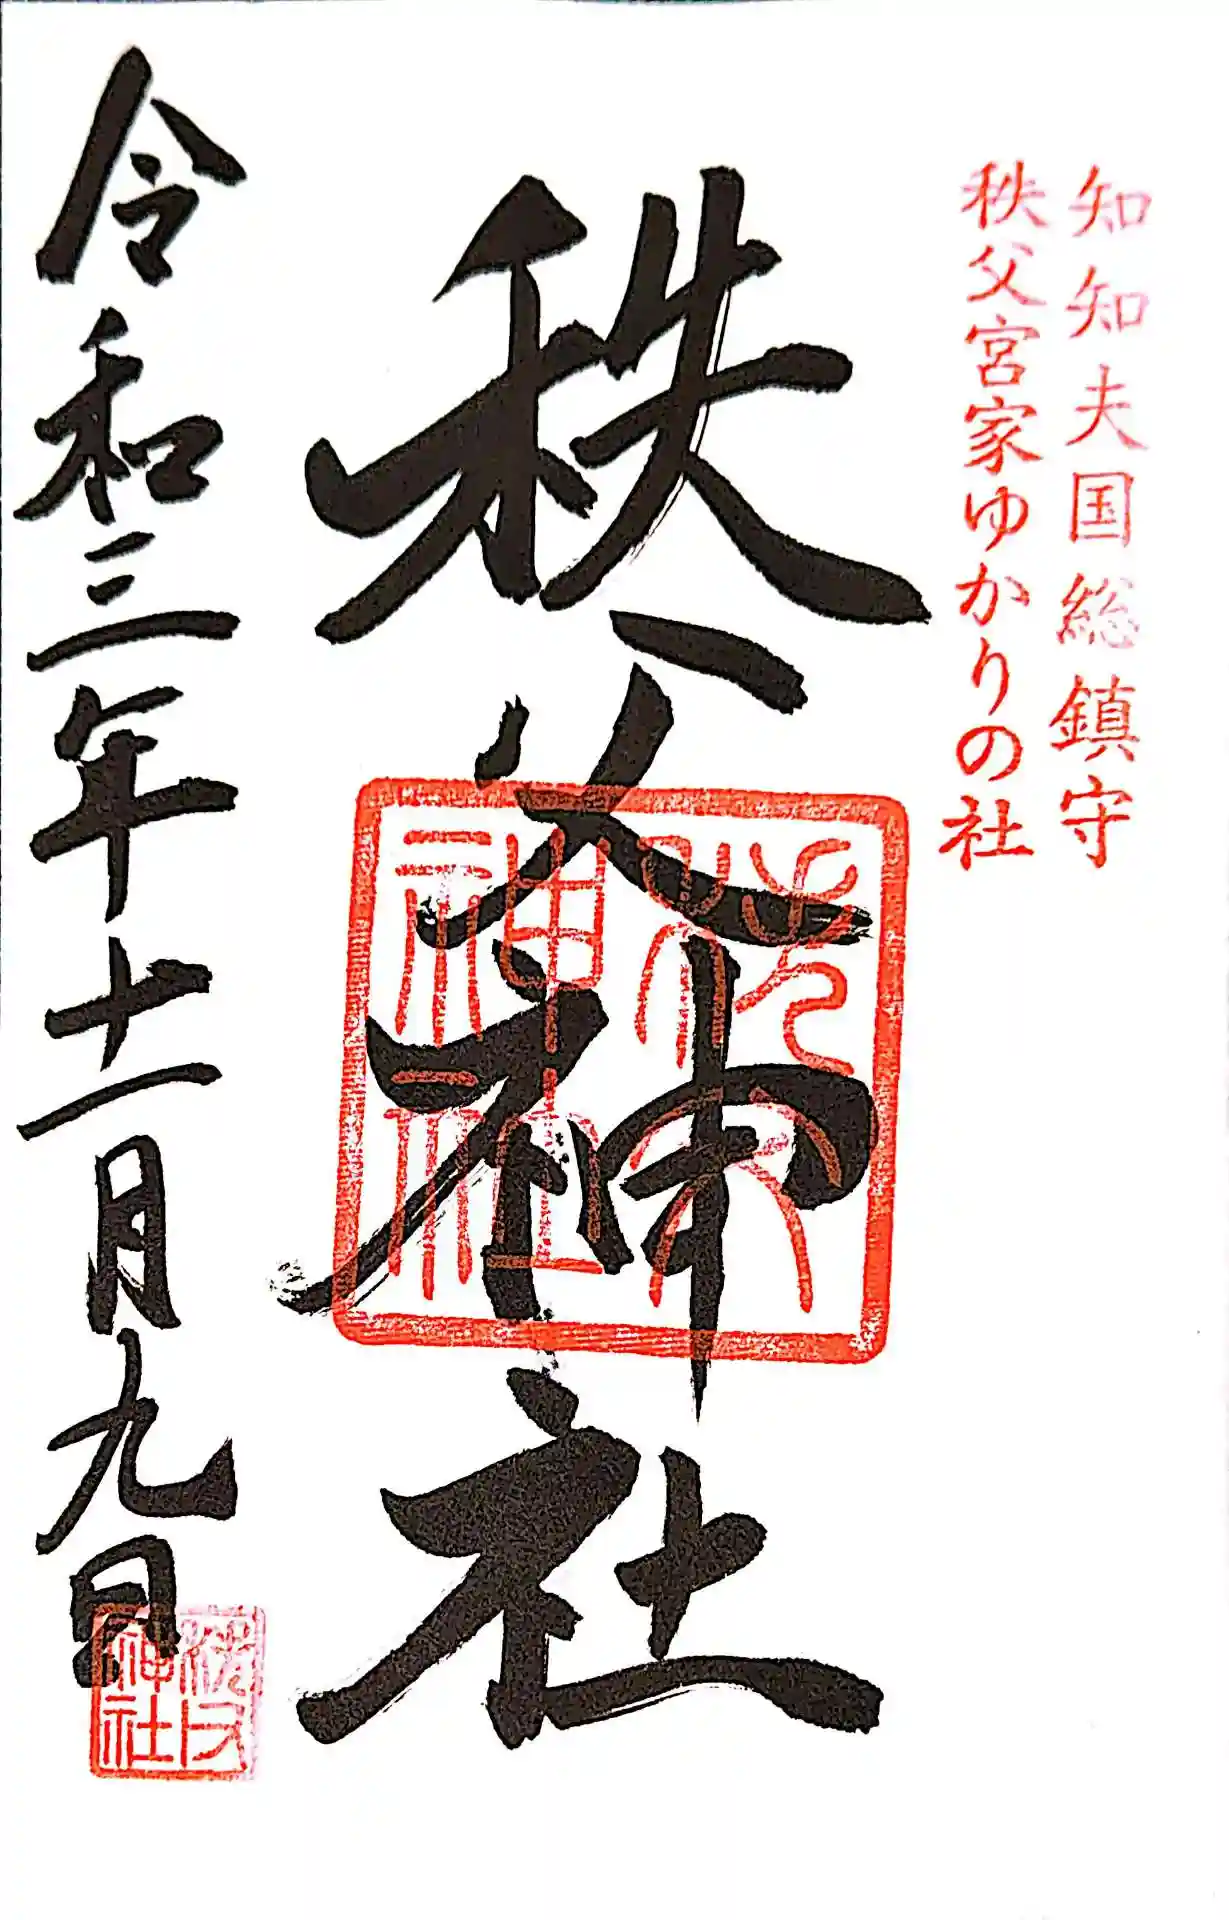 知知夫国総鎮守
秩父宮家ゆかりの社
秩父神社
秩父神社
令和三年十一月九日
秩父神社